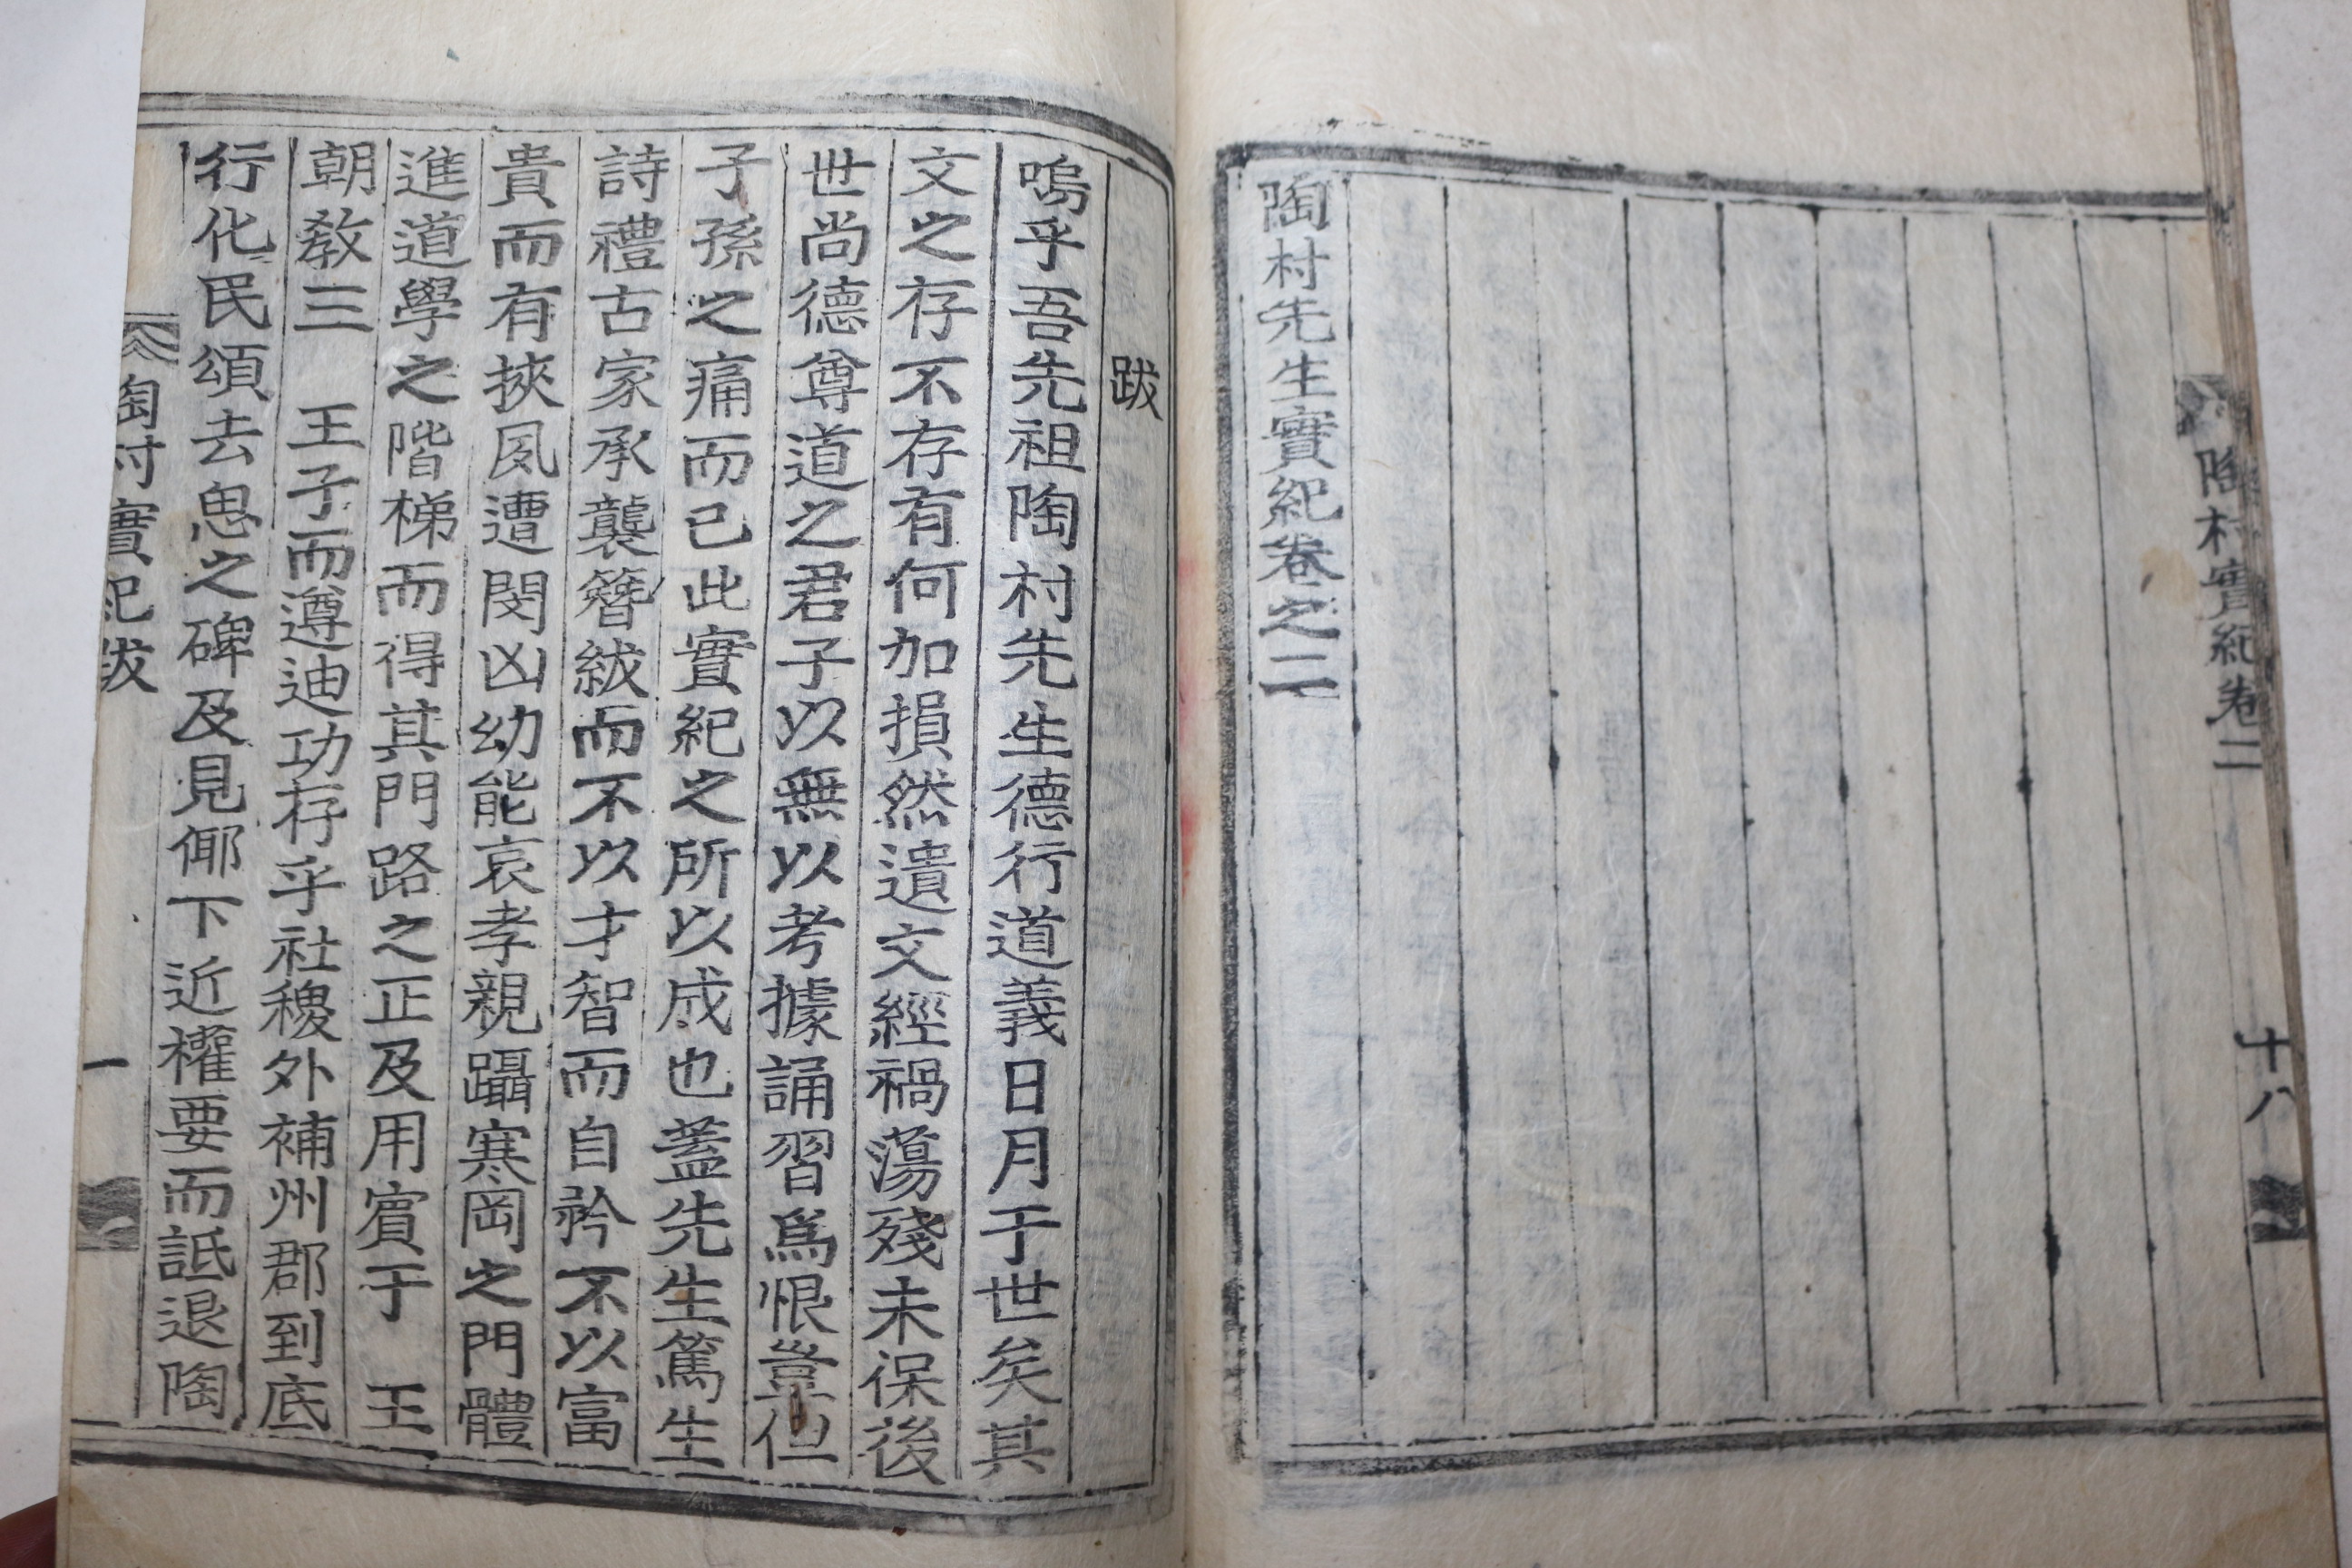 陶村實紀卷二
十八
陶村先生實紀卷之二
跋
嗚乎吾先祖陶村先生德行道義日月于世矣其
文之存不存有何加損然遺文經禍蕩殘未保後
世尚德尊道之君子以無以考據誦習爲恨豈但
子孫之痛而已此實紀之所以成也蓋先生篤生
詩禮古家承襲簪紱而不以才智而自矜不以富
貴而有挾夙遭閔凶幼能哀孝親躡寒岡之門體
進道學之階梯而得其門路之正及用賓于 王
朝敎三 王子而遵迪功存乎社稷外補州郡到底
行化民頌去思之碑及見倻下近權要而詆退陶
陶村實紀跋
一